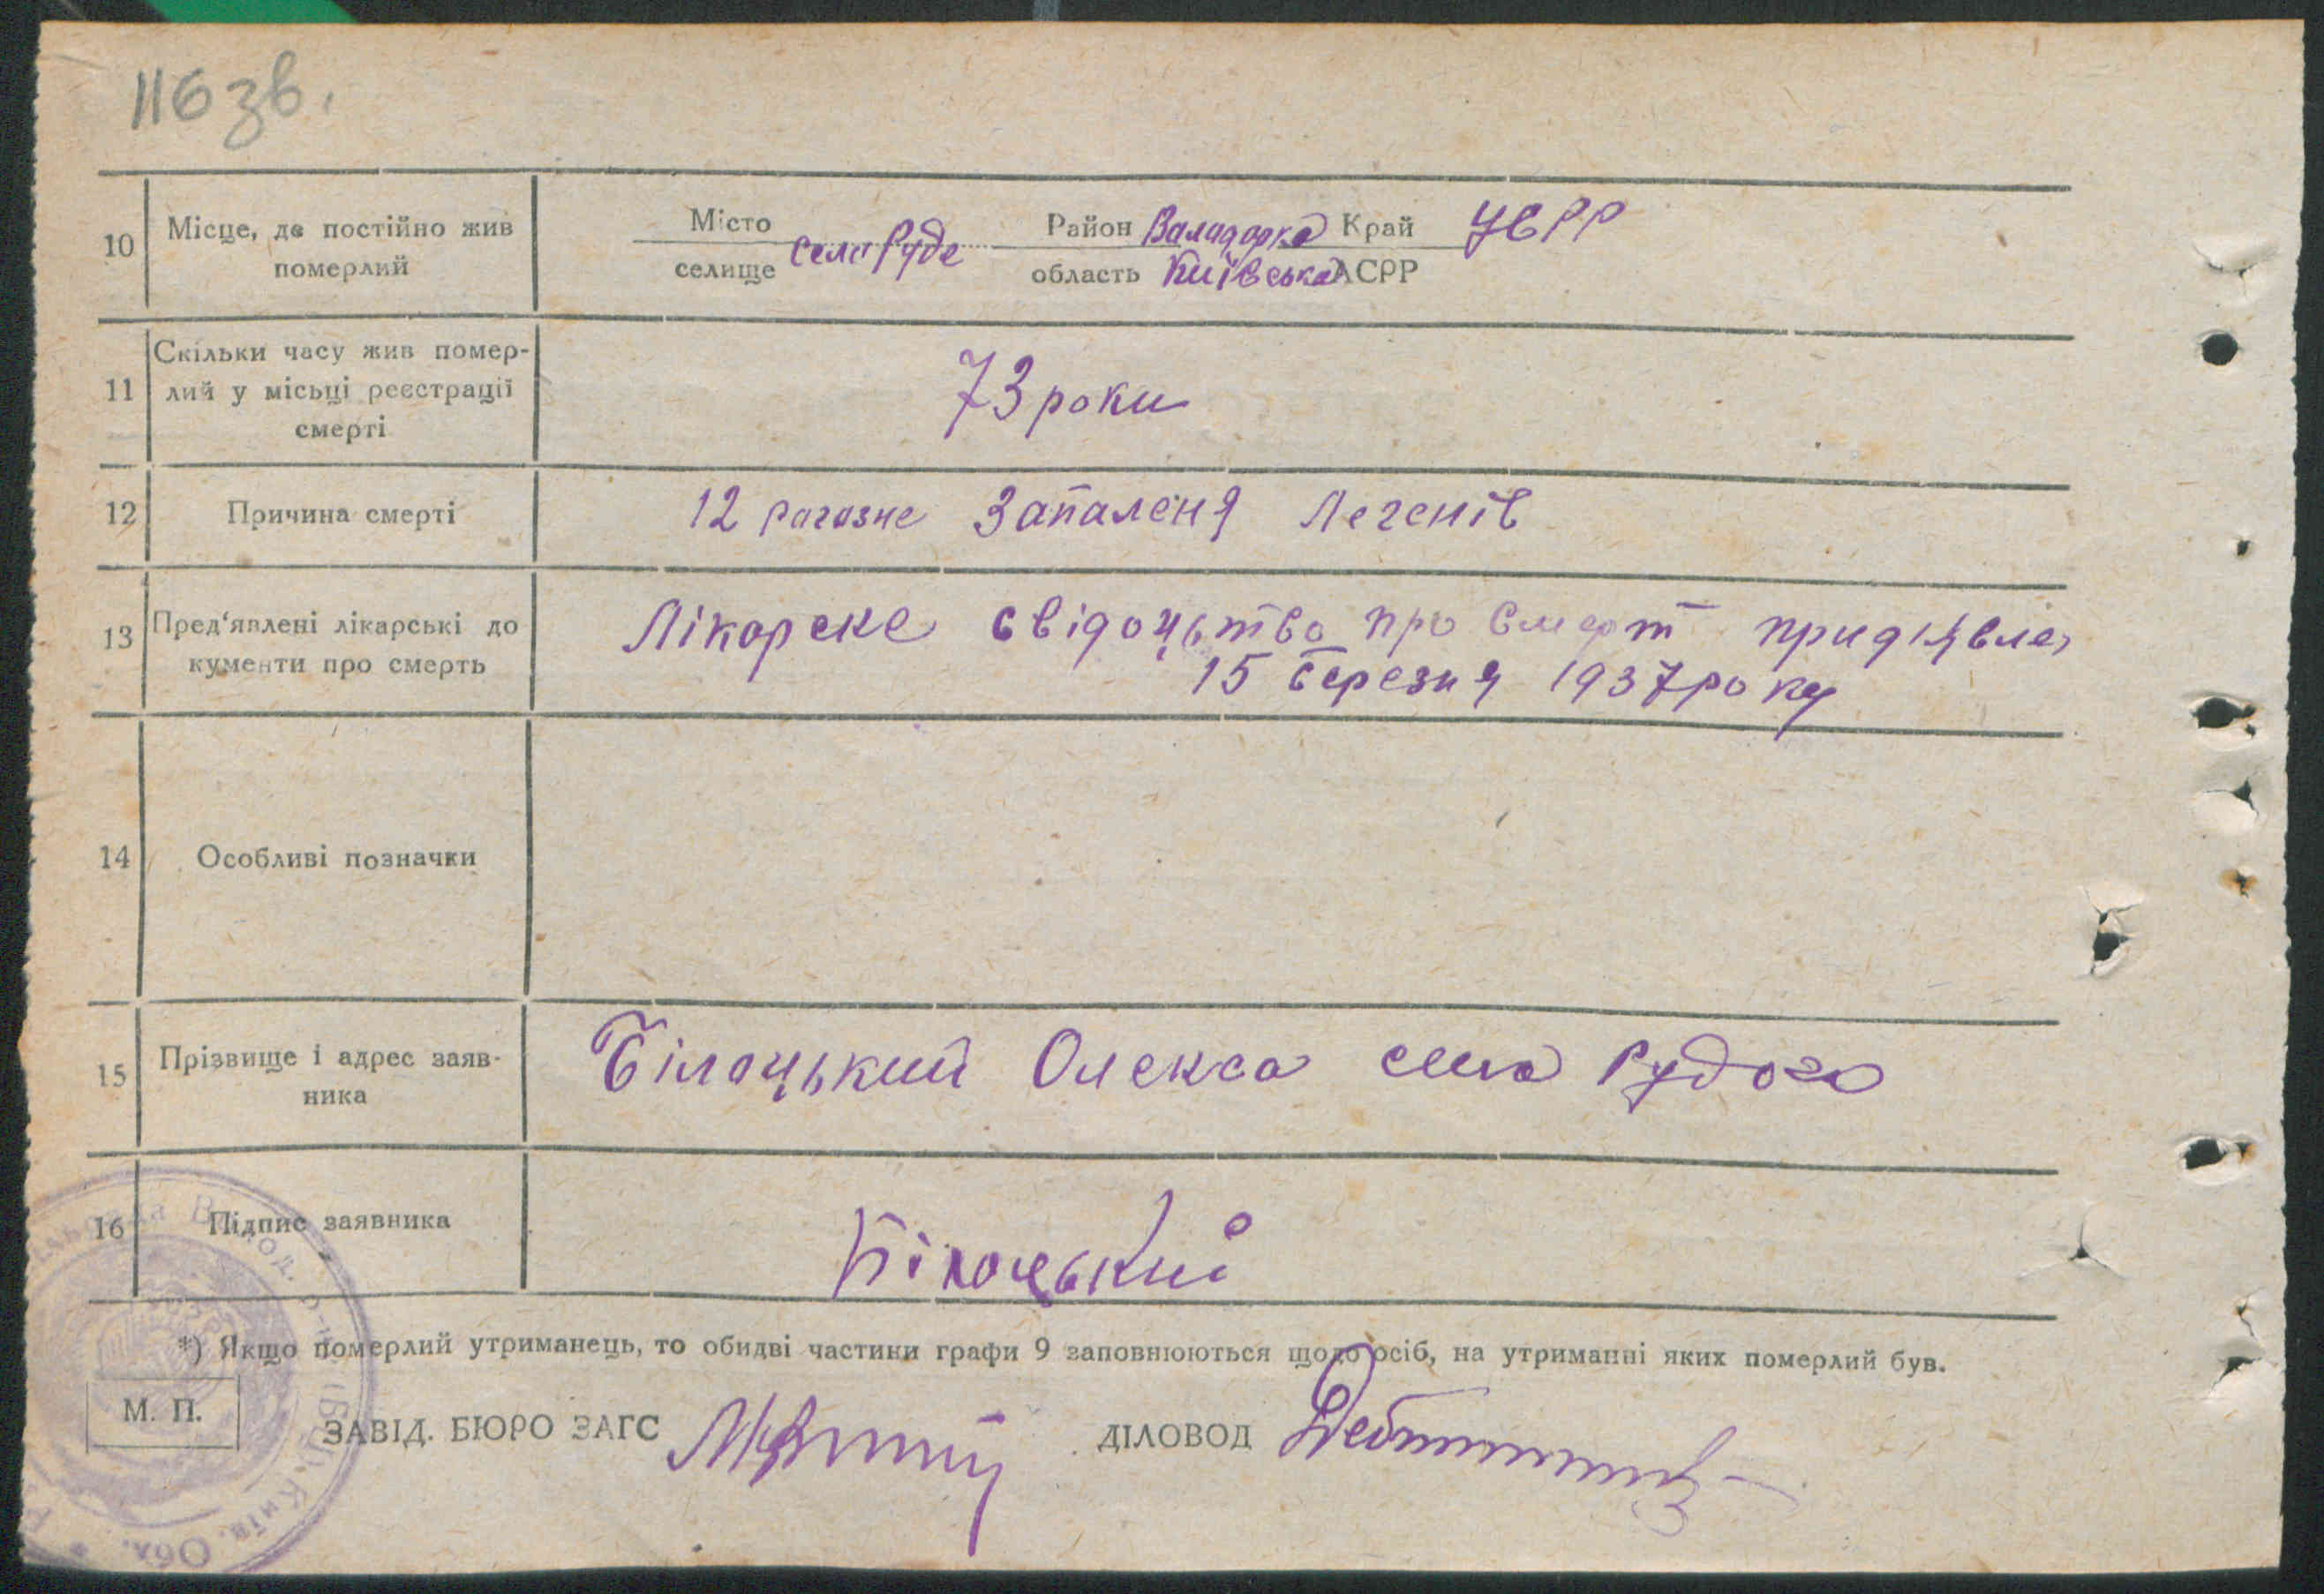 116 зв.
10 Місце, де постійно жив померлий
Місто селище село Руде Район Валадарка область Київська Край АСРР УСРР
11 Скільки часу жив помер-
лий у місьці реєстрації
смерті
73 роки
12 Причина смерті
12 Запаленя Легенів
13 Пред'явлені лікарські до
кументи про смерть
Лікарске свідоцьтво про смерт
15 березня 1937 року
14 Особливі позначки
15 Прізвище і адрес заяв-
ника
Білоцький Олекса села Рудого
16 Підпис заявника
Білоцький
*) Якщо померлий утриманець, то обидві частини графи 9 заповнюються щодо осіб, на утриманні яких померлий був.
М. П.
ЗАВІД. БЮРО ЗАГС ДІЛОВОД
Київ. Обл.